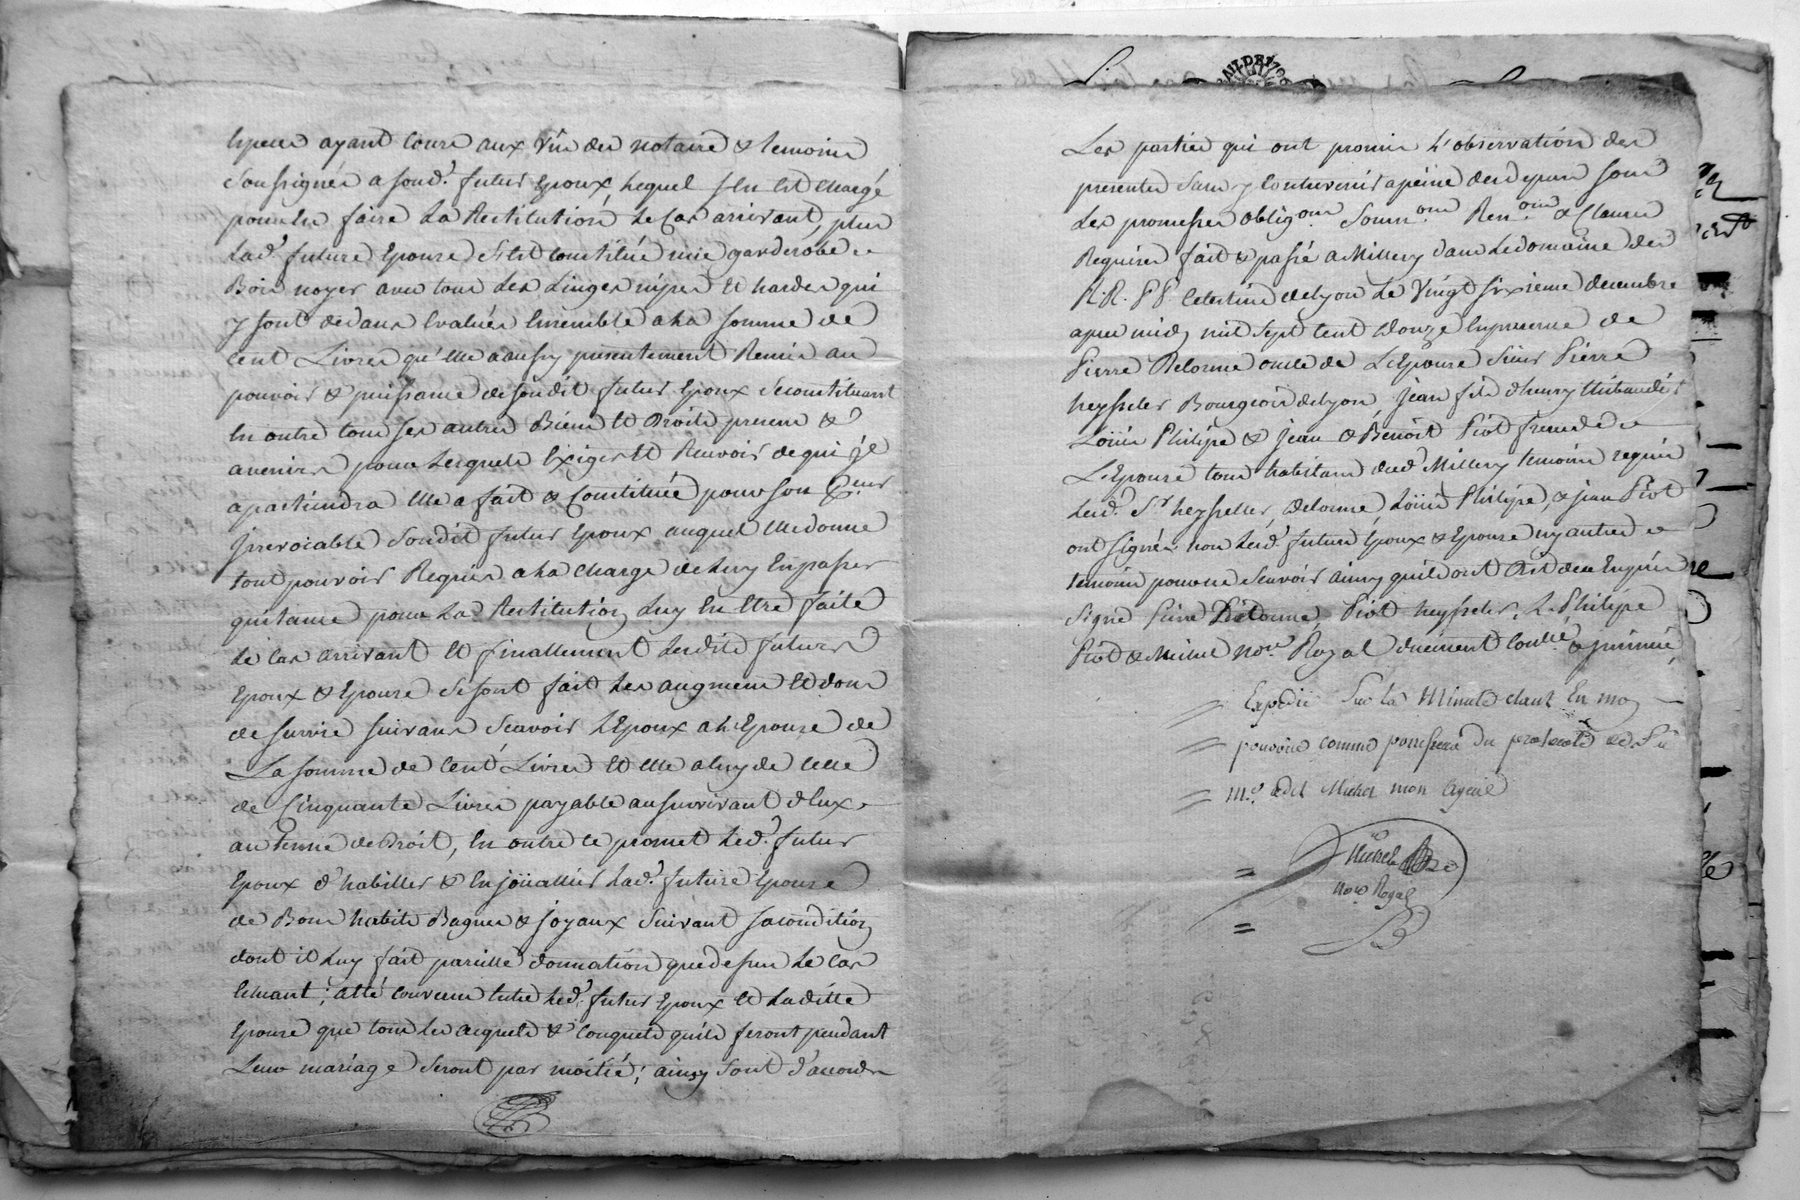 Especes ayant cours aux vûe des notaire & temoins
soussignés a sond.^t futur Epoux, lequel sen est chargé
pour en faire la Restitution le Cas arrivant, plus
lad.^e future Epouse s'est constitué une garderobe
Bois noyer avec tous les Linges nipes et hardes qui
y sont dedans Evalués Ensemble a la somme de
cent Livres qu'elle a aussy presentement Remis au
pouvoir & puissance desondit futur Epoux seconstituant
En outre tous ses autres Biens et Droits presens &
avenirs pour lesquels Exiger et Recevoir dequi il
apartiendra Elle a fait & Constitué pour son
Irrevocable Sondit futur Epoux auquel Elledonne
tout pouvoir Requis a la charge de luy Enpasser
quitance pour la Restitution luy En Etre faite
le cas arrivant et finallement lesdits futurs
Epoux & Epouse se sont fait les augmens et dons
de survie suivans Scavoir L'Epoux a l'Epouse de
La somme de Cent Livres et Elle a luy de celle
de Cinquante Livres payable au survivant d'Eux
au terme de Droit, En outre ce promet led.^t futur
Epoux d'habiller & Enjoüaller lad.^e future Epouse
de Bons habits Bagues & joyaux Suivant sacondition
dont il luy fait pareille donnation quedessus le Cas
Echeant; atté convenu Entre led.^t futur Epoux et Laditte
Epouse que tous les acquets & Conquets quils feront pendant
Leur mariage seront par moitié; ainsy sont d'accords
Les parties qui ont promis L'observation des
presentes Sans y Contrevenir apeine desdepens sous
Les promesses oblig^ons Soum^ons Ren^ons & Clauses
Requises fait & passé a Millery dans le domaine des
R.R. P P. Celestins delyon le Vingt sixieme decembre
apres midy mil sept cent douze Enpresence de
Pierre Delorme oncle de L'Epouse Sieur Pierre
heysseler Bourgeois delyon, Jean fils d'henry thibaudier
Loüis Philipe & Jean & Benoit Piot freres de
L'Epouse tous habitans dud.^t Millery temoins requis
led.^t S^r heysseler, delorme, Loüis Philipe, & jean Piot
ont signés non lesd.^ts futurs Epoux & Epouse ny autres
temoins pour ne Scavoir ainsy quils ont Dit deux Enquis
Signé Pierre Delorme, Piot heysseler, L. Philipe
Piot & Michel No^re Royal duement Coll^é &
Expedié Sur la Minute etant En mon
pouvoir comme possesseur du protocole de feu
M.^e Michel mon ayeul
Michel
No^re Royal